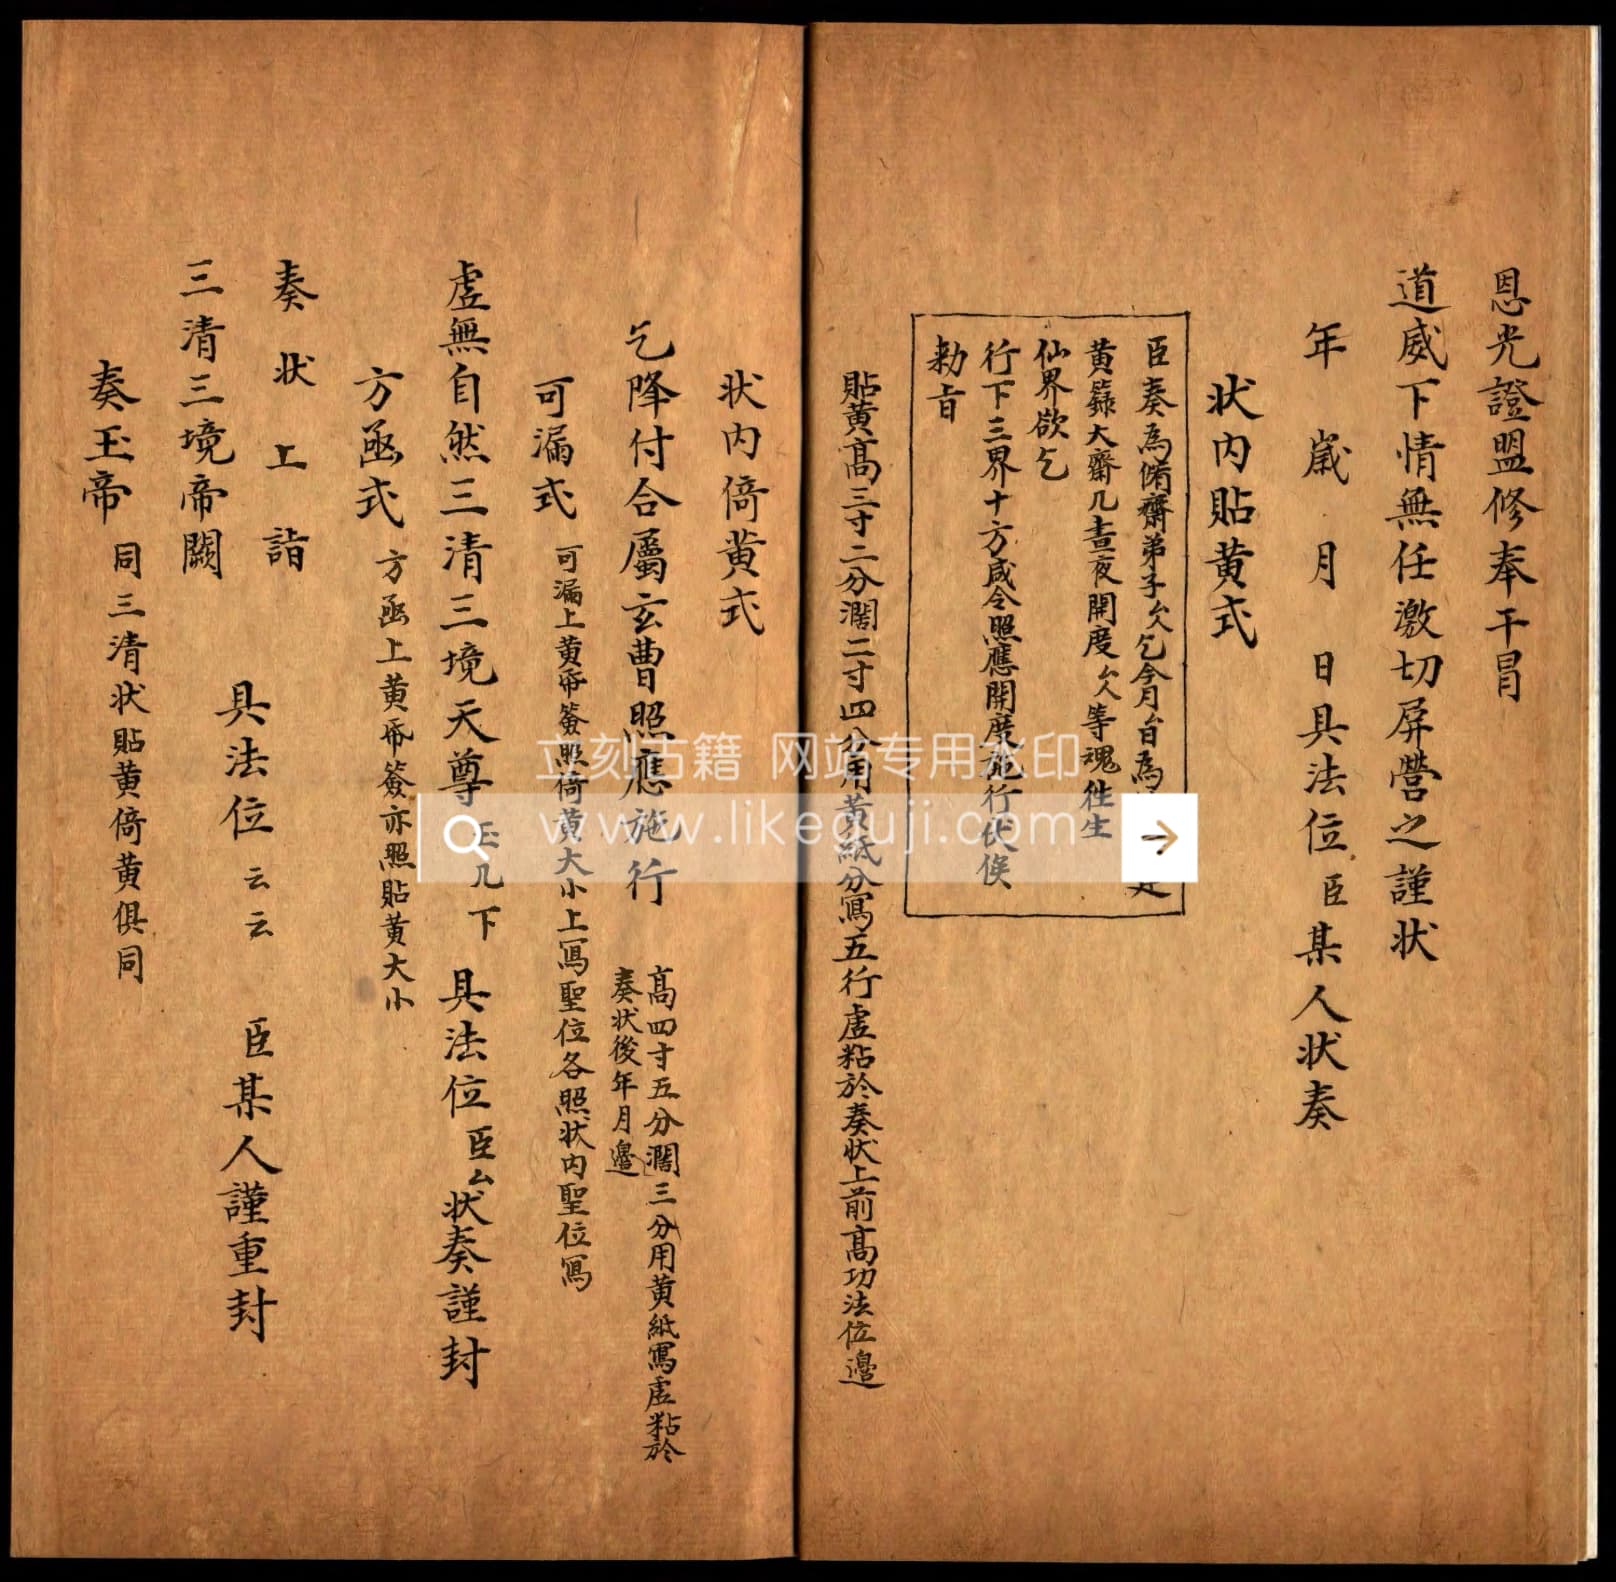 恩光證盟修奉干冒
道威下情無任激切屏營之謹狀
年歲月日具法位臣某人狀奏
狀内貼黄式
臣奏為脩齋弟子厶乞今月台為
黄籙大齋几晝夜開度厶等魂往生
仙界欲乞
行下三界十方咸令照應開度施行伏候
勅旨
貼黄高三寸二分濶二寸四分用黄紙分寫五行虚粘於奏狀上前高功法位邉
狀内倚黄式
乞降付合屬玄曹照應施行
高四寸五分濶三分用黄紙寫虚粘於
奏狀後年月邉
可漏式
可漏上黄帋簽照倚黄大小上寫聖位各照狀内聖位寫
虚無自然三清三境天尊玉几下具法位臣厶狀奏謹封
方凾式
方凾上黄帋簽亦照貼黄大小
奏狀上詣
具法位云云臣某人謹重封
三清三境帝闕
奏玉帝同三清狀貼黄倚黄俱同
立刻古籍 网站专用水印
www.likeguji.com